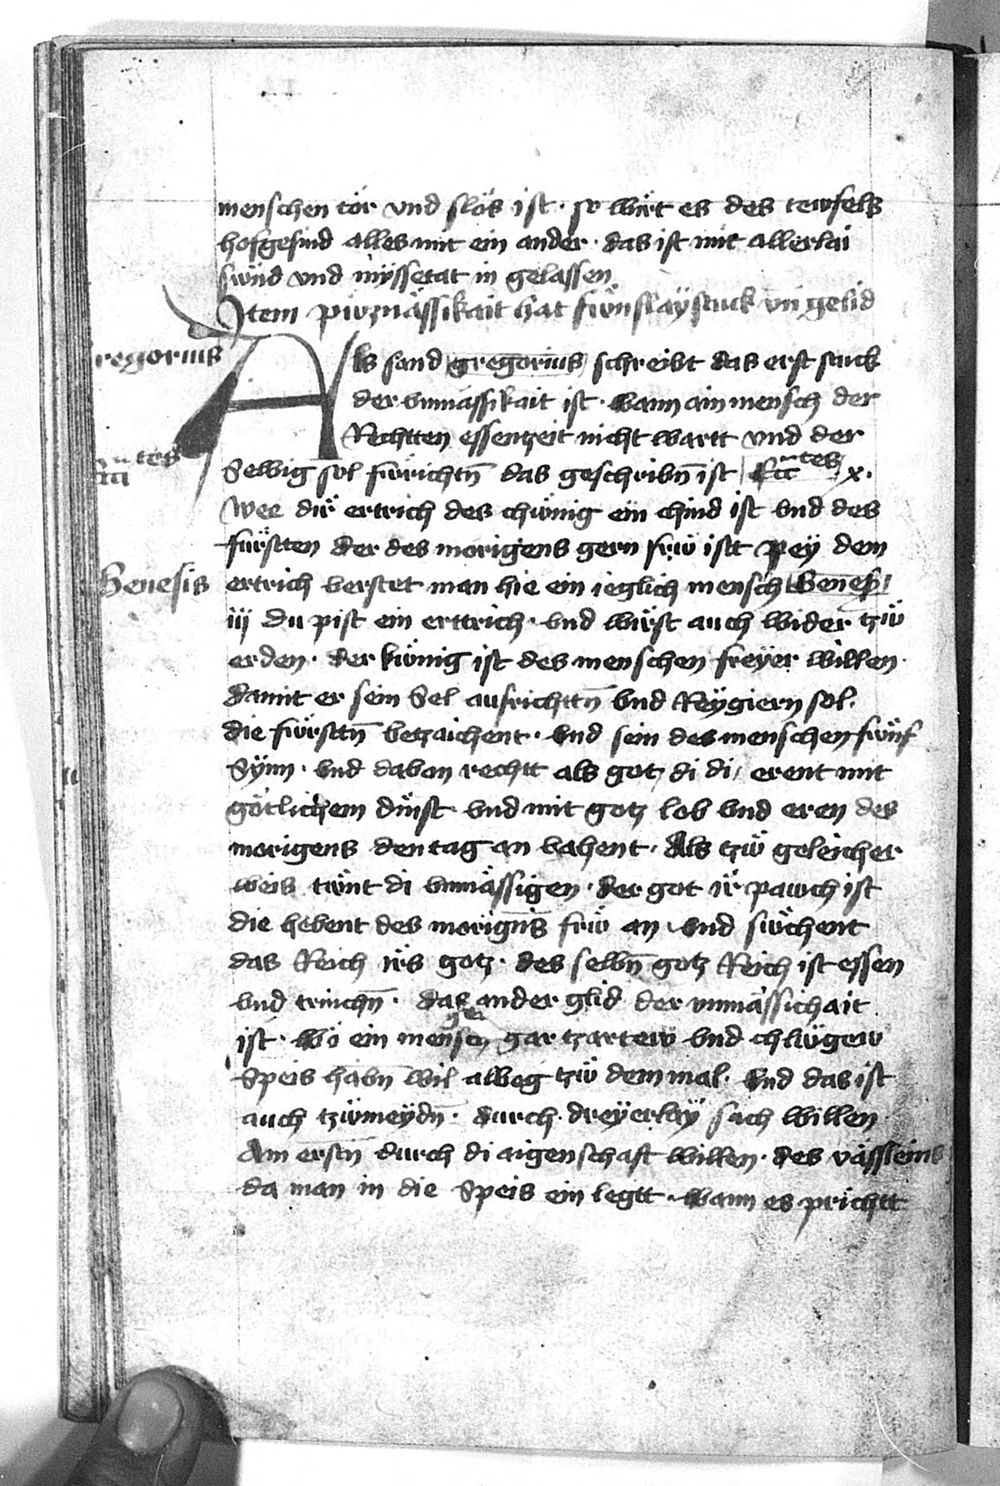 menschen tör vnd slös ist · so wirt es des tewfels
hofgesind alles mit ein ander · das ist mit allerlai
sünd vnd mÿssetat in gelassen
Item vnmässikait hat fünflaÿ stuck vn̄ gelid
regorius
Als sand gregorius schreibt das erst stuck
der vnmässikait ist · wann ain mensch der
Rechtten essentzeit nicht wartt vnd der
Selbig sol fürichtn̄ das geschribn̄ ist Ecc̄tes x.
Wee dir ertrich des chünig ein chind ist vnd des
fürstten der des morigens gern frü isst pey dem
Genesis
ertrich verstet man hie ein ieglich mensch Genes̄
iij du pist ein erttrich · vnd wirst auch wider tzü
erden · der künig ist des menschen freÿer willen ·
damit er sein Sel aufrichttn̄ vnd Reÿgiern sol ·
die fürsttn̄ betzaichent · vnd sein des menschen fünf
Sÿnn · vnd davon rechtt als got di di erent mit
götlichem dinst vnd mit gotz lob vnd eren des
morigens den tag an vahent · Als tzü geleicher
weis tünt di vnmässigen · der got ir pawch ist
die hebent des morign̄s frü an vnd süchent
das Reich irs gotz · des selbn̄ gotz Reich ist essen
vnd trinchn̄ · das ander glid der vnmässichait
ist · wo ein mensch gar tzartew vnd chlügew
Speis habn̄ wil albeg tzü dem mal · vnd das ist
auch tzümeÿdn̄ · durch dreÿerlaÿ sach willen
Am erstn̄ durch di aigenschaft willen · des vässleins
da man in die Speis ein legtt · wann es prichtt